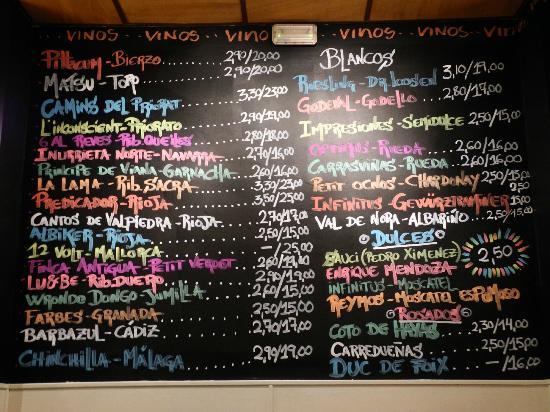 VINOS - VINOS - VINOS - VINO VINOS - VINOS - VINOS
Pittacum - Bierzo 2,90/20,00
Matsu - Toro 2,90/20,00
Camins del Priorat 3,30/23,00
L'inconscient - Priorato 2,70/19,00
6 al Reves - Rib. Queiles 2,80/18,00
Inurrieta Norte - Navarra 2,70/16,00
Principe de Viana - Garnacha 2,60/16,00
La Lama - Rib. Sacra 3,50/25,00
Predicador - Rioja 3,50/25,00
Cantos de Valpiedra - Rioja 2,70/17,00
Albiker - Rioja 2,50/15,00
12 Volt - Mallorca — /25,00
Finca Antigua - Petit Verdot 2,60/18,00
Lu&Be - Rib. Duero 2,90/19,00
Wrongo Dongo - Jumilla 2,60/15,00
Farbes - Granada 2,50/15,00
Barbazul - Cádiz 2,70/17,00
Chinchilla - Málaga 2,90/19,00
Blancos
Riesling - Dr Loosen 3,10/17,00
Godeval - Godello 2,80/17,00
Impresiones - Semidulce 2,50/15,00
Rueda 2,60/16,00
Carrasviñas - Rueda 2,60/16,00
Petit Ocnos - Chardonay 2,50/15,00
Infinitus - Gewürztraminer 2,50
Val de Nora - Albariño 2,50/15,00
Dulces
Sauci (Pedro Ximenez)
Enrique Mendoza
Infinitus - Moscatel
Reymos - Moscatel Espumoso
2,50
Rosados
Coto de Hayas 2,30/14,00
Carredueñas 2,50/15,00
Duc de Foix — /16,00